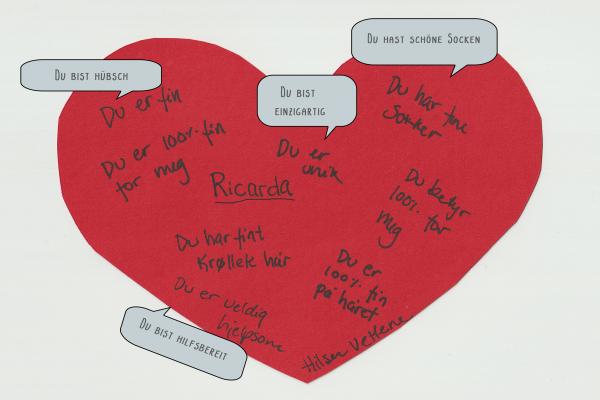 Du bist hübsch
Du er fin
Du er 100% fin
for meg
Du bist
einzigartig
Du er
unik
Du hast schöne Socken
Du har fine
Sokker
Ricarda
Du betyr
100% for
meg
Du har fint
Krøllete hår
Du er
100% fin
på håret
Du er veldig
hjelpsom
Du bist hilfsbereit
Hilsen Vetlene